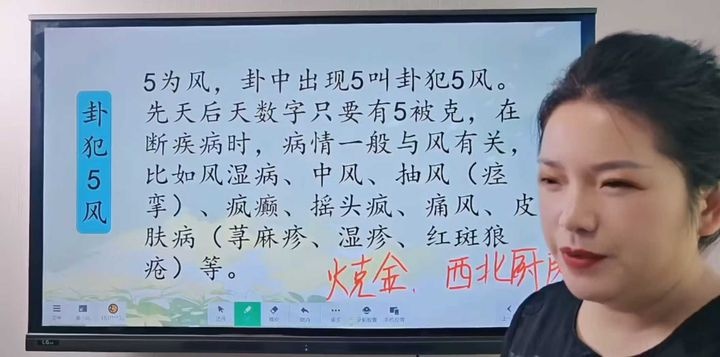 卦犯5风
5为风，卦中出现5叫卦犯5风。
先天后天数字只要有5被克，在
断疾病时，病情一般与风有关，
比如风湿病、中风、抽风（痉
挛）、疯癫、摇头疯、痛风、皮
肤病（荨麻疹、湿疹、红斑狼
疮）等。
火克金.西北厨